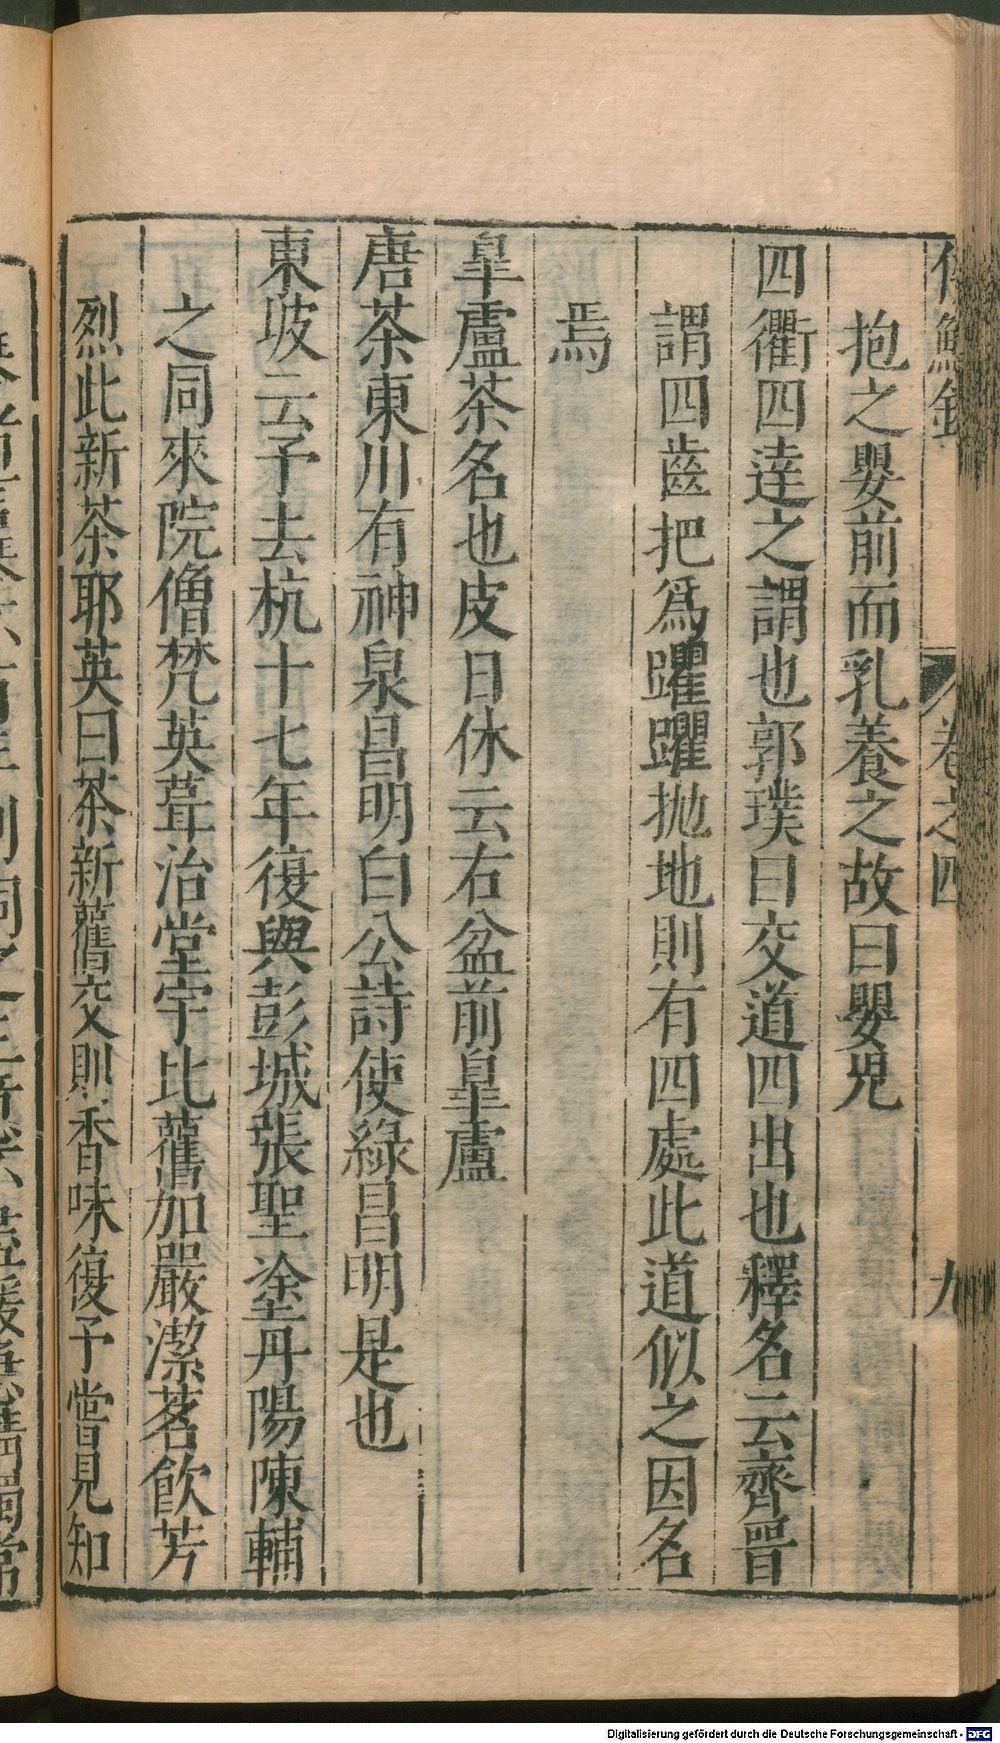 侯鯖錄 卷之四 九
抱之嬰前而乳養之故曰嬰兒
四衢四達之謂也郭璞曰交道四出也釋名云齊晉
謂四齒把爲躍躍拋地則有四處此道似之因名
焉
皐盧茶名也皮日休云右盆前皐盧
唐茶東川有神泉昌明白公詩使綠昌明是也
東坡云予去杭十七年復與彭城張聖塗丹陽陳輔
之同來院僧梵英葺治堂宇比舊加嚴潔茗飲芳
烈此新茶耶英曰茶新舊交則香味復予嘗見知
Digitalisierung gefördert durch die Deutsche Forschungsgemeinschaft - DFG